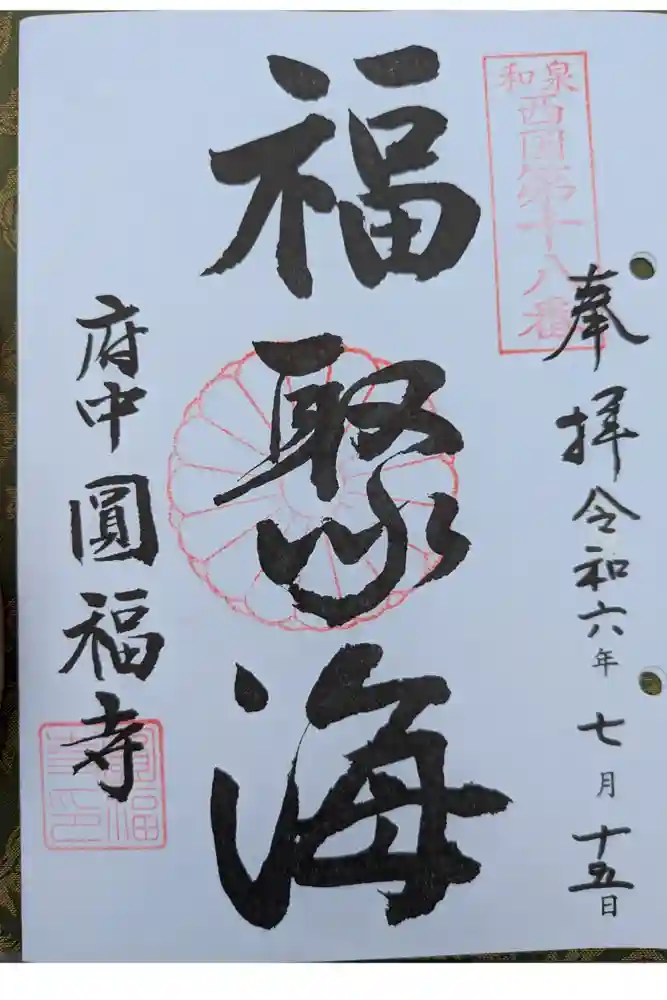 和泉
西国第十八番
奉拝令和六年七月十五日
福聚海
府中圓福寺
圓福寺印